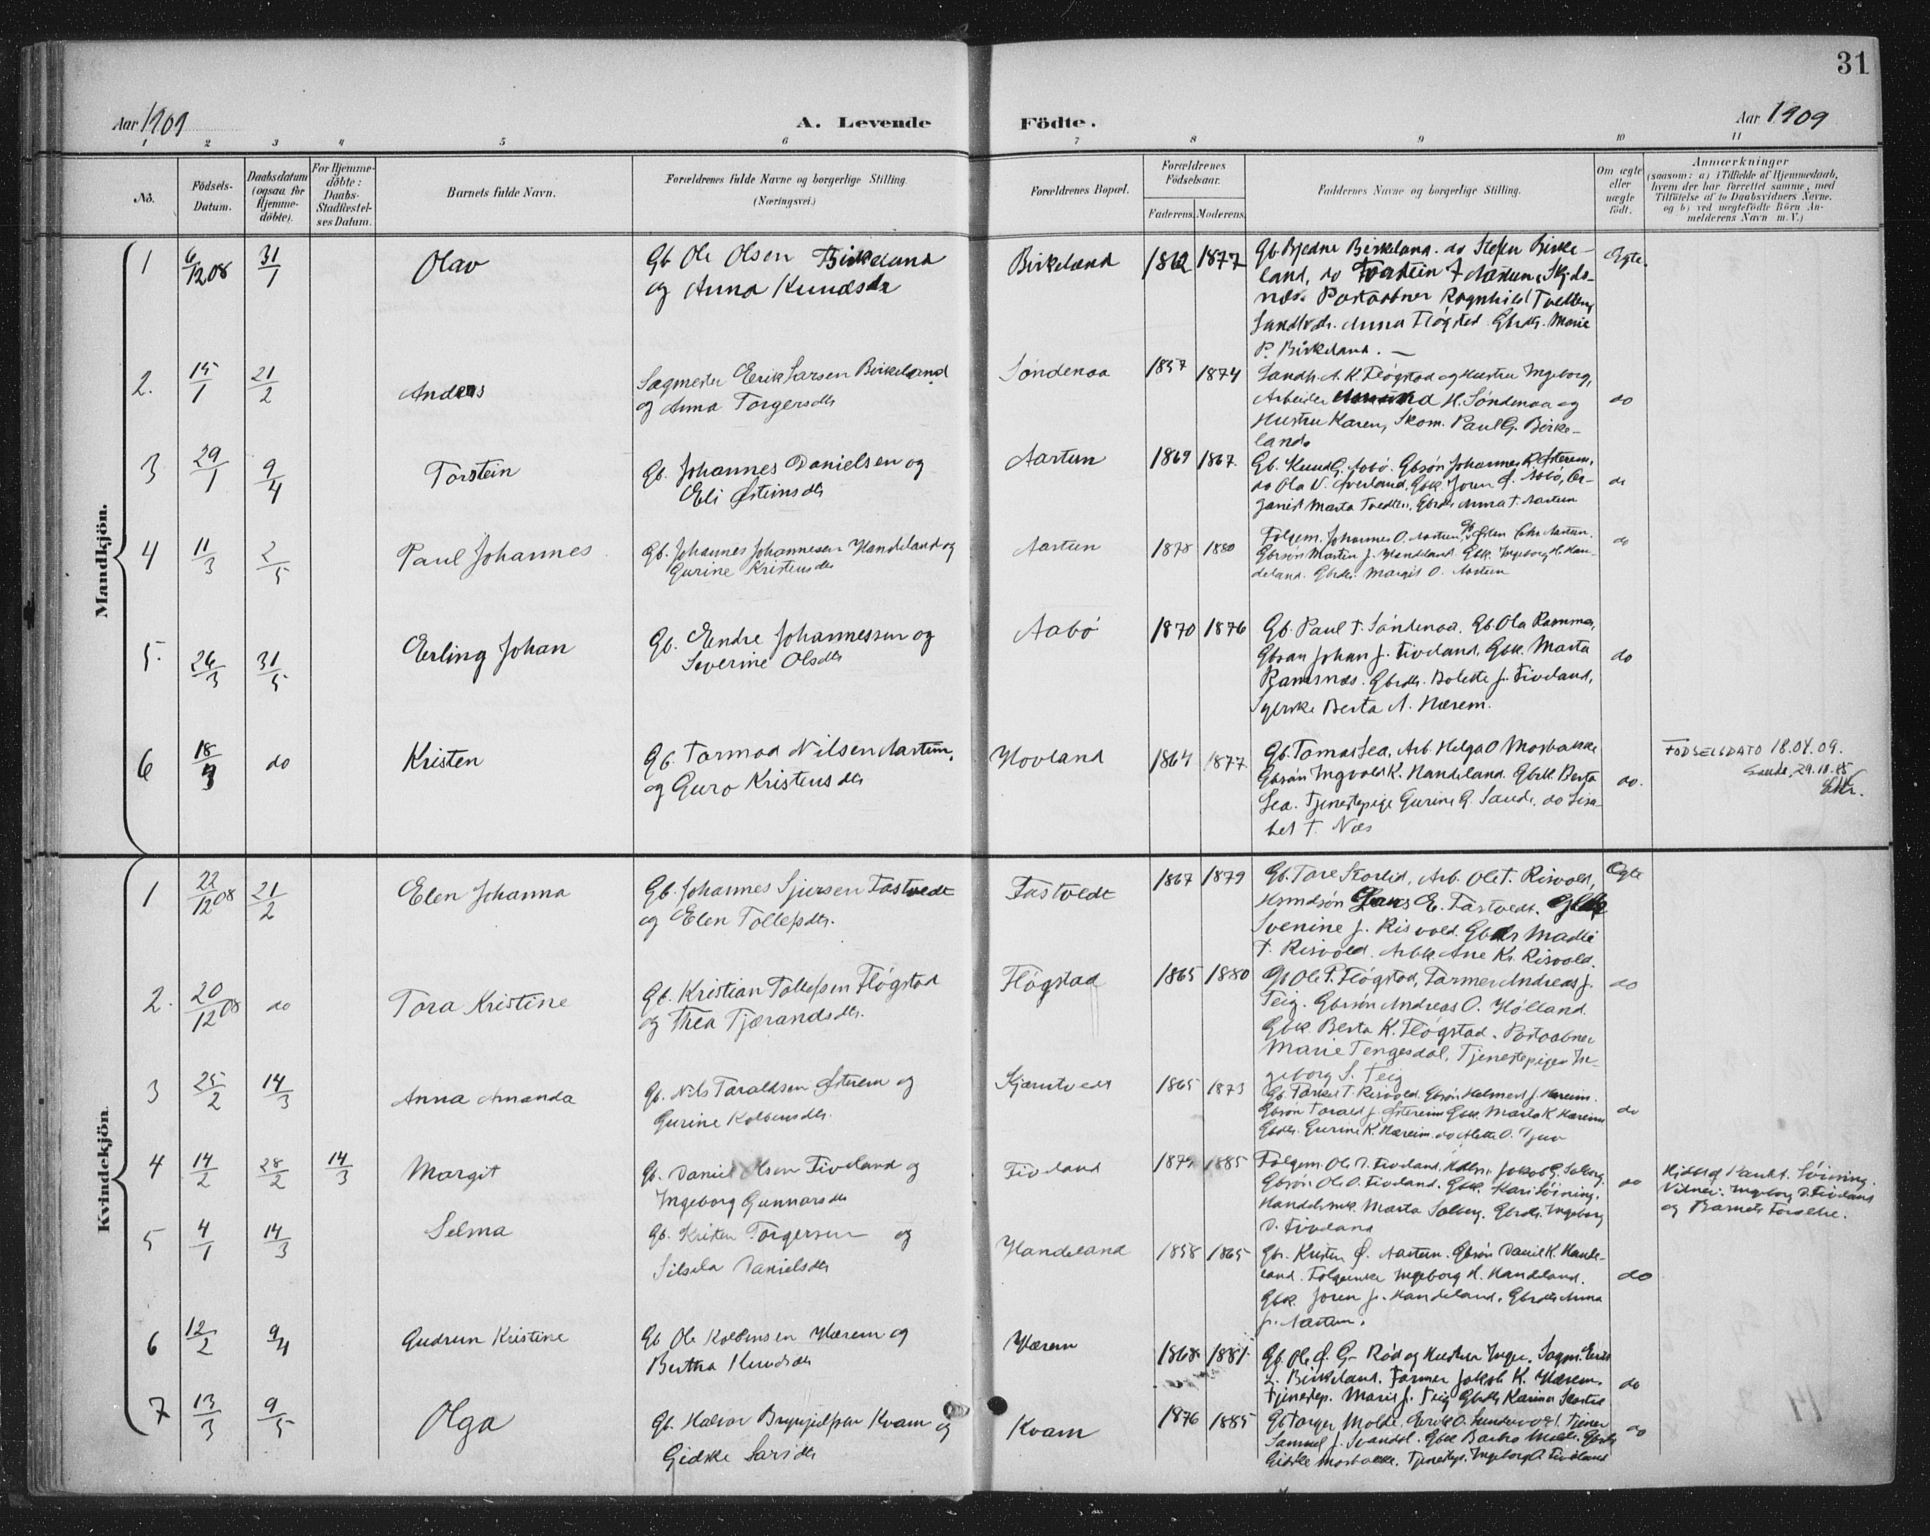 31
Aar 1909
A. Levende Födte.
Aar 1909
1 2 3 4 5 6 7 8 9 10 11
No.
Födsels-Datum.
Daabsdatum (ogsaa for Hjemme-döbte).
For Hjemme-döbte: Daabs-Stadfæstel-ses Datum.
Barnets fulde Navn.
Forældrenes fulde Navne og borgerlige Stilling. (Næringsvei.)
Forældrenes Bopæl.
Forældrenes Födselsaar.
Faderens. Moderens.
Faddernes Navne og borgerlige Stilling.
Om ægte eller uægte födt.
Anmærkninger
(saasom: a) i Tilfælde af Hjemmedaab, hvem der har forrettet samme, med Tilföielse af to Daabsvidners Navne. og b) ved uægtefödte Börn Anmelderens Navn m. V.)
Mandkjön.
1 6/12 08 31/1 Olav
Gb Ole Olsen Birkeland
og Anna Knudsdr
Birkeland 1862 1877
Gb Bjedne Birkeland. do Steffen Birke-
land, do
næs. Postaabner Ragnhild Tvedten,
Anna Fløgstad Gbrdtr. Marie
P. Birkeland.
Egte.
2. 15/1 21/2 Andreas
Sagmester Eerik Larsen Birkeland
og Anna Torgersdtr
Søndenaa 1857 1874
Landh A. K. Fløgstad og Hustru Ingeborg,
Arbeider Amund H. Søndenaa og
Hustru Karen, Skom. Paul G. Birke-
land.
do
3 29/1 9/4 Torstein
Gb. Johannes Danielsen og
Eli Østeinsdtr
Aartun 1869 1867.
Gb. Knud G. Aabø. Gbsøn Johannes R. Østerem,
do Ola N. Øverland. Gbk Joren Ø. Aabø, Or-
ganist Marta Tvedten, Gbrdtr Anna T. Aartun
do
4 11/3 2/5 Paul Johannes
Gb. Johannes Johannesen Handeland og
Gurine Kristensdtr
Aartun 1878 1880
Folgem. Johannes O. Aartun,
Gbrsøn Marten J. Handeland Gbk. Ingeborg H. Han-
deland. Gbrdtr. Margit O. Aartun
do
5. 26/3 31/5 Erling Johan
Gb. Endre Johannessen og
Severine Olsdtr
Aabø 1870 1876
Gb. Paul T. Søndenaa. Gb Ola Ramsnes,
Gbsøn Johan J. Tiveland, Gbk. Marta
Ramsnæs. Gbrdtr. Bolette J. Tiveland,
Syerske Berta A. Hærem.
do
6 18/ do Kristen
Gb. Tormod Nilsen Aartun.
og Guro Kristensdtr
Hovland 1864 1877
Gb. Tomas Lea, Arb. Helga O Mosbakke
Gbrsøn Ingvald K. Handeland. Gbrk. Berta
Lea. Tjenestepige Gurine G. Sande, do Lisa-
bet T. Næs
do.
FØDSELSDATO 18.04.09.
Sauda, 29.10.85
Kvindekjön.
1 22/12 08 21/2 Elen Johanna
Gb. Johannes Sjursen Tastvedt
og Elen Tollefsdtr.
Tastvedt 1867 1879
Gb. Tore Skorlid, Arb. Ole T. Risvold,
Lars E. Tastvedt. Gbk
Svenine J. Risvold. Gbdtr Madli
T. Risvold. Arbk Ane K. Risvold.
Egte
2. 20/12 08 do Tora Kristine
Gb. Kristian Tollefsen Fløgstad
og Thea Tjærandsdtr.
Fløgstad 1865 1880
Gb Ole P. Fløgstad, Farmer Andreas J.
Teig. Gbrsøn Andreas O. Hølland.
Gbk. Berta K. Fløgstad. Postaabner
Marie Tengesdal, Tjenestepigen In-
geborg S. Teig
do
3 25/2 14/3 Anna Amanda
Gb. Nils Taraldsen Østerem og
Gurine Kolbensdtr.
1865 1873
Gb. Torkel T. Risvold. Gbrsøn Halmert J. Hæreim.
Gbrsøn Tarald J. Østereim Gbk. Marta K. Hæreim
Gbrdtr. Gurine K. Hæreim. do Alette O. Tjuv
do
4 14/2 28/2 14/3 Margit
Gb. Daniel Olsen Tiveland og
Ingeborg Gunnarsdtr
Tiveland 1879 1885
Folgem. Ole D. Tiveland. Hdlm. Jakob G. Solberg,
Gbrsøn Ole O. Tiveland. Gbk. Kari Søining.
Handelsmk. Marta Solberg. Gbrdtr. Ingeborg
D. Tiveland
do
Hjdbt af Søining.
Vidner: Ingeborg D. Tiveland
og Barnets Forældre.
5 4/1 14/3 Selma
Gb. Kristen Torgersen og
Sitsela Danielsdtr
Handeland 1858 1865
Gb. Kristen Ø. Aartun. Gbrsøn Daniel K. Hande-
land. Folgeenke Ingeborg H. Handland.
Gbk. Joren J. Handeland. Gbrdtr Anna
J. Aartun.
do
6 12/2 9/4 Gudrun Kristine
Gb Ole Kolbensen Hærem og
Bertha Knudsdtr
Hærem 1868 1881.
Gb. Ole G. Rød og Hustru Inger. Sagm. Eerik
L. Birkeland. Farmer Jakob K. Hærem.
Tjenestep. Marie J. Teig Gbrdtr Karina Skorlid
do
7 13/3 9/5 Olga
Gb. Halvor Brynjulfsen Kvam og
Gidske Larsdtr
Kvam 1876 1885
Gb Torger Molde, Eerik O. Tjener
Samuel J. Svandal. Gbk Barbro Molde. Gbrdtr
Gidske Mosbakke. Tjenestep. Ingeborg D. Tiveland
do